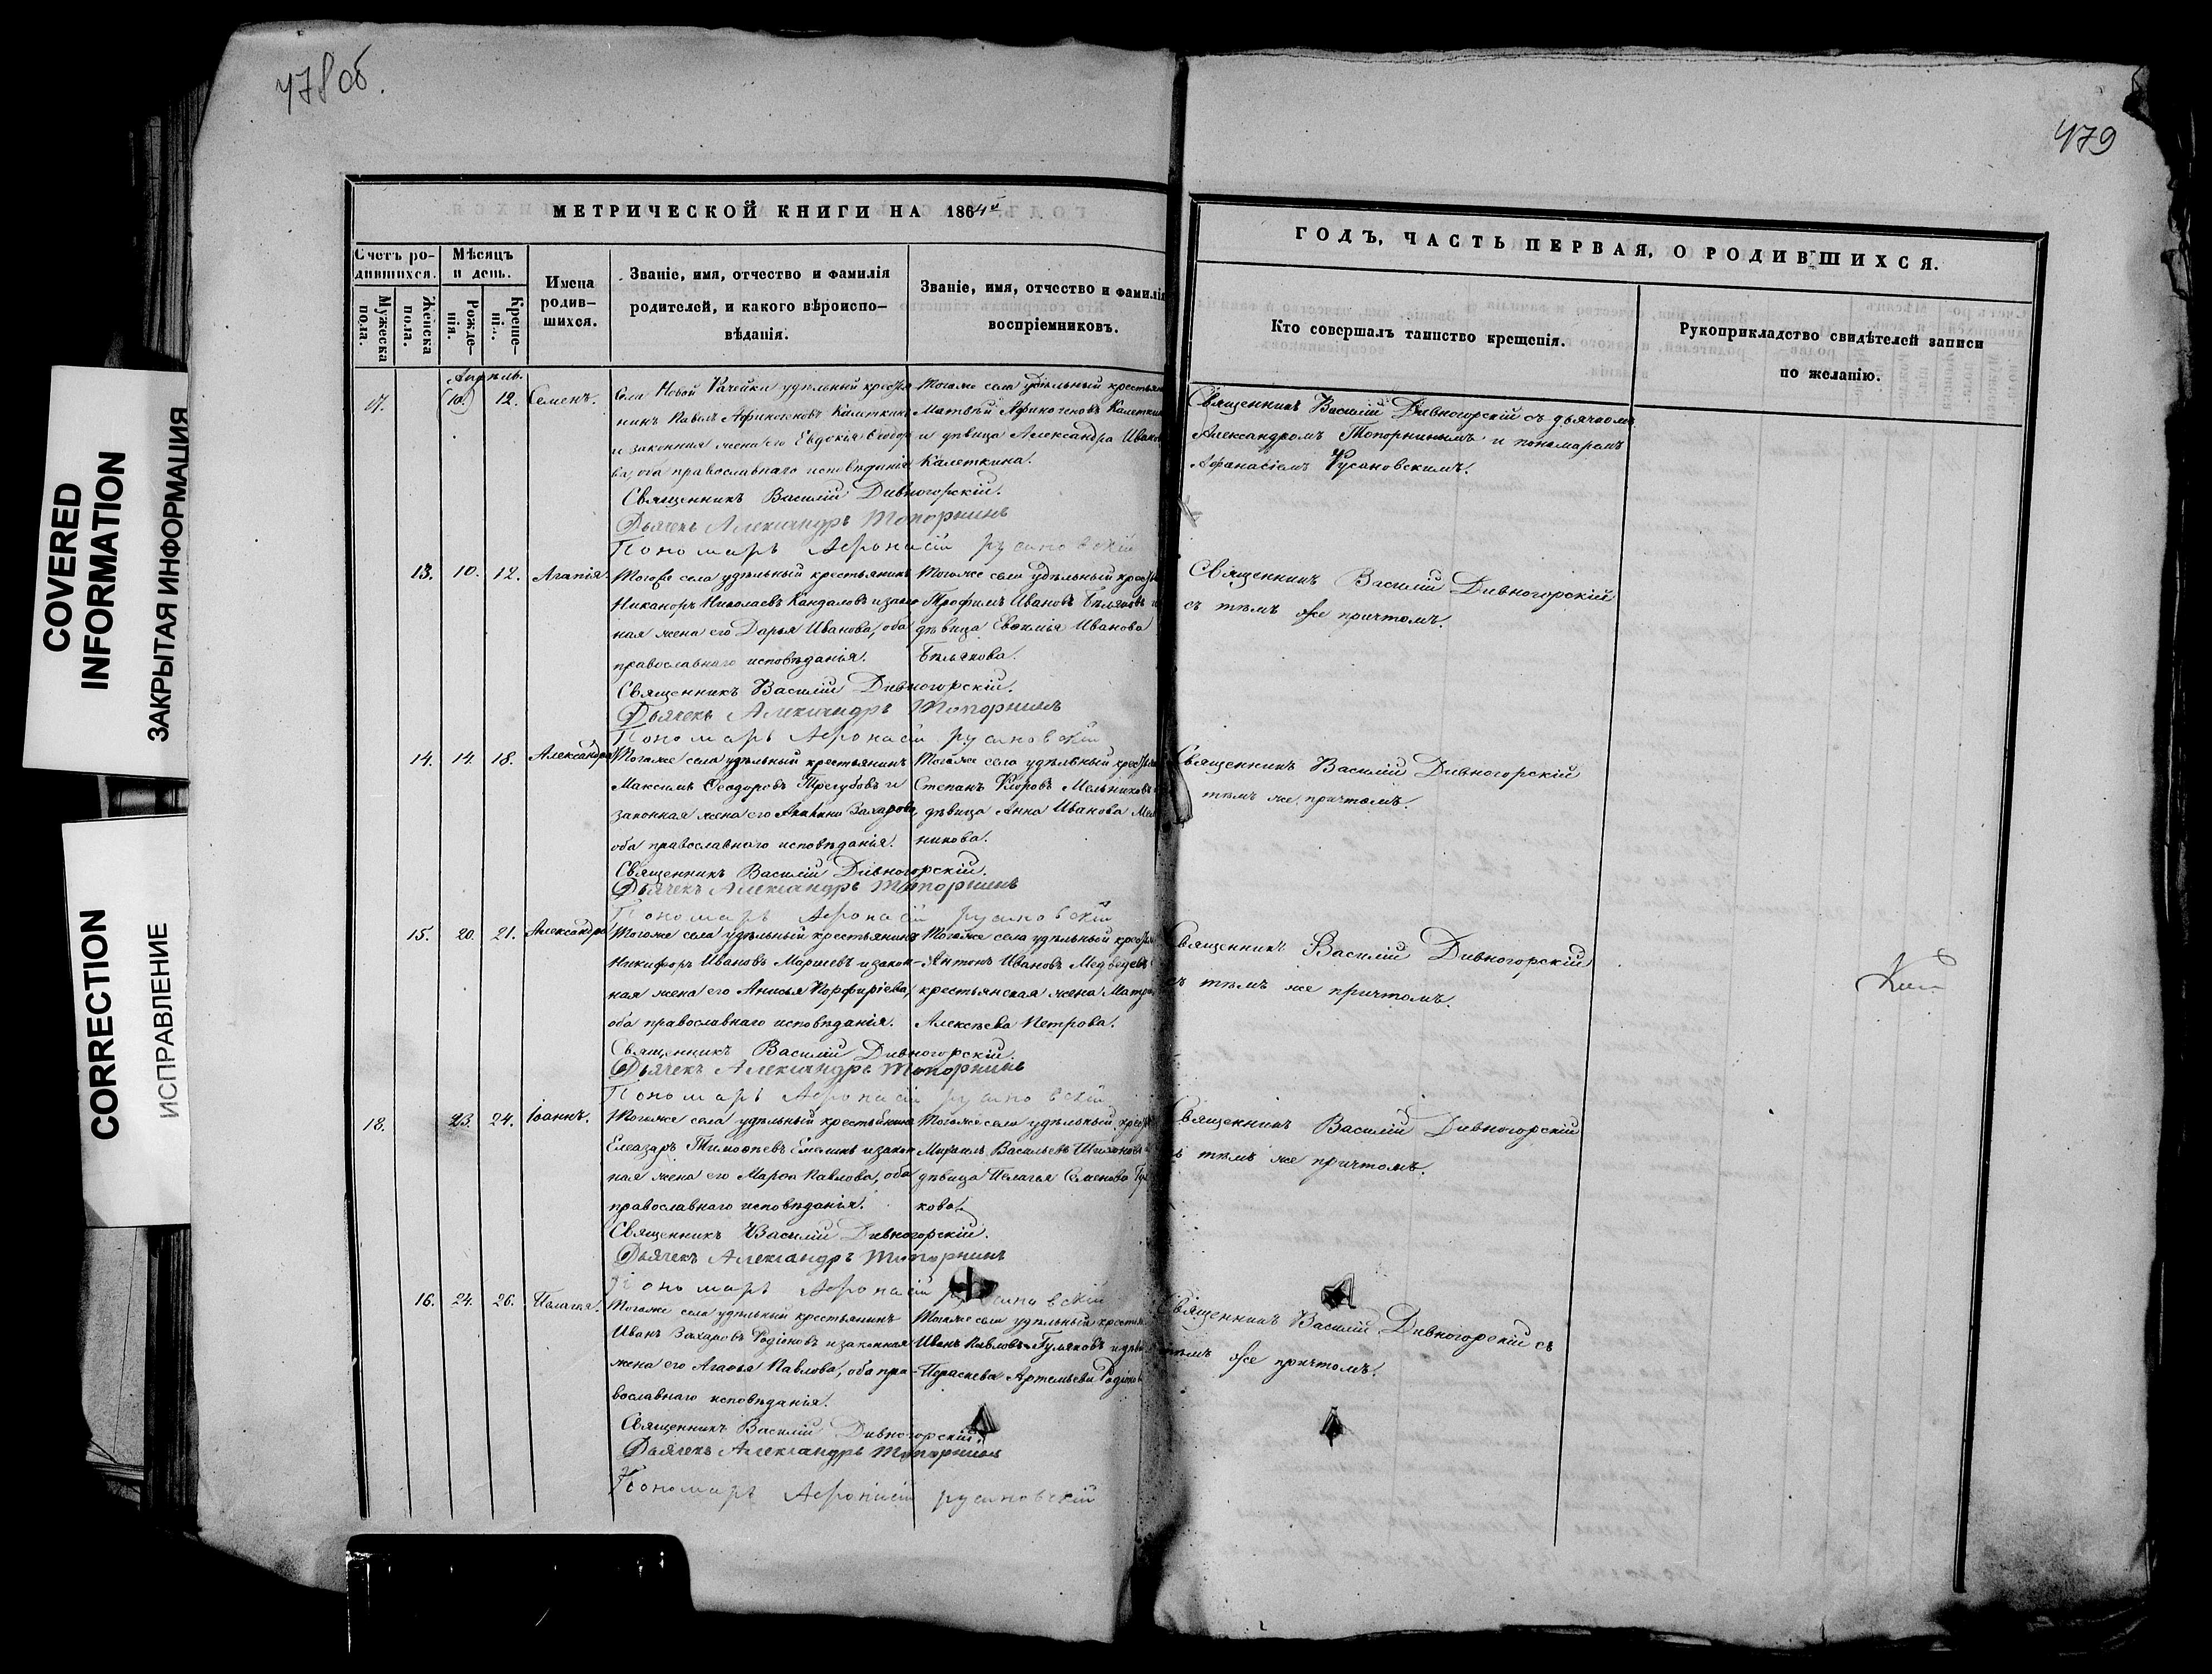 478 об.
479
COVERED
INFORMATION
ЗАКРЫТАЯ ИНФОРМАЦИЯ
CORRECTION
ИСПРАВЛЕНИЕ
МЕТРИЧЕСКОЙ КНИГИ НА 1864й
Счетъ ро-
дившихся.
Мужеска
пола.
Женска
пола.
Мѣсяцъ
и день.
Рожде-
нія.
Креще-
нія.
Имена
родив-
шихся.
Званіе, имя, отчество и фамилія
родителей, и какого вѣроиспо-
вѣданія.
Званіе, имя, отчество и фамилія
воспріемниковъ.
ГОДЪ, ЧАСТЬ ПЕРВАЯ, О РОДИВШИХСЯ.
Кто совершалъ таинство крещенія.
Рукоприкладство свидѣтелей записи
по желанію.
Апрѣль.
17. 10. 12. Семенъ.
Села Новой Рачейки удѣльный крестья
нинъ Павелъ Афиногеновъ Калеткинъ
и законная жена его Евдокія Ѳеодоро
ва оба православнаго исповѣданія
Тогоже села удѣльный крестьян
Матвѣй Афиногеновъ Калеткин
и дѣвица Александра Иванов
Калеткина.
Священникъ Василій Дивногорскій съ дьячкомъ
Александромъ Топорнинымъ и пономаремъ
Афанасіемъ Русановскимъ.
Священникъ Василій Дивногорскій.
Дьячекъ Александръ Топорнинъ
Пономарь Афонасій русановскій
13. 10. 12. Агапія.
Тогоже села удѣльный крестьянинъ
Никаноръ Николаевъ Кандаловъ и закон
ная жена его Дарья Иванова, оба
православнаго исповѣданія.
Тогоже села удѣльный крестья
Трофимъ Ивановъ Бѣляковъ и
дѣвица Евѳимія Иванова
Бѣлякова.
Священникъ Василій Дивногорскій
съ тѣмъ же причтомъ.
Священникъ Василій Дивногорскій.
Дьячекъ Александръ Топорнинъ
Пономарь Афонасій русановскій
14. 14. 18. Александра
Тогоже села удѣльный крестьянинъ
Максимъ Ѳеодоровъ Трегубовъ и
законная жена его Захарова,
оба православнаго исповѣданія.
Тогоже села удѣльный крестья
Степанъ Мельниковъ
дѣвица Анна Иванова Мел
никова.
Священникъ Василій Дивногорскій
тѣмъ же причтомъ.
Священникъ Василій Дивногорскій.
Дьячекъ Александръ Топорнинъ
Пономарь Афонасій русановскій
15. 20. 21. Александра
Тогоже села удѣльный крестьянинъ
Никифоръ Ивановъ и закон-
ная жена его Анисья Порфиріева,
оба православнаго исповѣданія.
Тогоже села удѣльный крестья
Антонъ Ивановъ Медвѣдевъ
крестьянская жена Матро
Алексѣева Петрова.
Священникъ Василій Дивногорскій
съ тѣмъ же причтомъ.
Священникъ Василій Дивногорскій.
Дьячекъ Александръ Топорнинъ
Пономарь Афонасій русановскій
18. 23. 24. Іоаннъ.
Тогоже села удѣльный крестьянинъ
Елеазаръ Тимоѳеевъ Емелинъ и закон
ная жена его Марѳа Павлова, оба
православнаго исповѣданія.
Тогоже села удѣльный крестья
Михаилъ Васильевъ
дѣвица Пелагея Семенова Гу
кова.
Священникъ Василій Дивногорскій
тѣмъ же причтомъ.
Священникъ Василій Дивногорскій.
Дьячекъ Александръ Топорнинъ
Пономарь Афонасій русановскій
16. 24. 26. Пелагея.
Тогоже села удѣльный крестьянинъ
Иванъ Захаровъ Родіоновъ и законная
жена его Агаѳья Павлова, оба пра-
вославнаго исповѣданія.
Тогоже села удѣльный крестья
Иванъ Павловъ Гуляковъ и дѣв
Параскева Артемьева Родіонов
Священникъ Василій Дивногорскій съ
тѣмъ же причтомъ.
Священникъ Василій Дивногорскій.
Дьячекъ Александръ Топорнинъ
Пономарь Афонасій русановскій